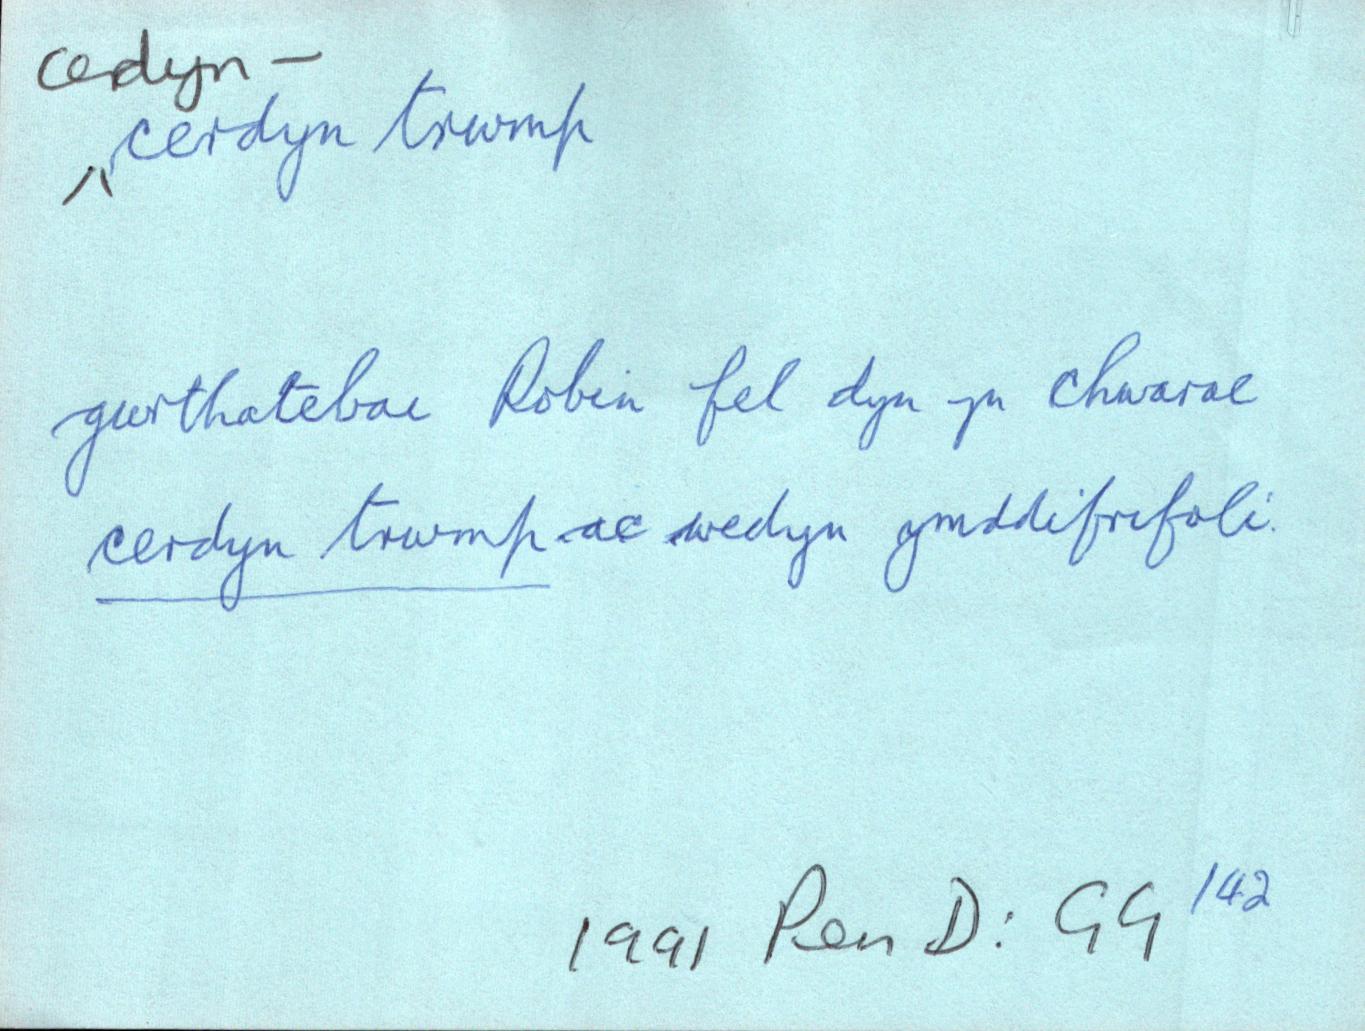 cerdyn –
cerdyn trwmp
gwrthatebae Robin fel dyn yn chwarae
cerdyn trwmp ac wedyn ymddifrifoli.
1991 Pen D: GG 142